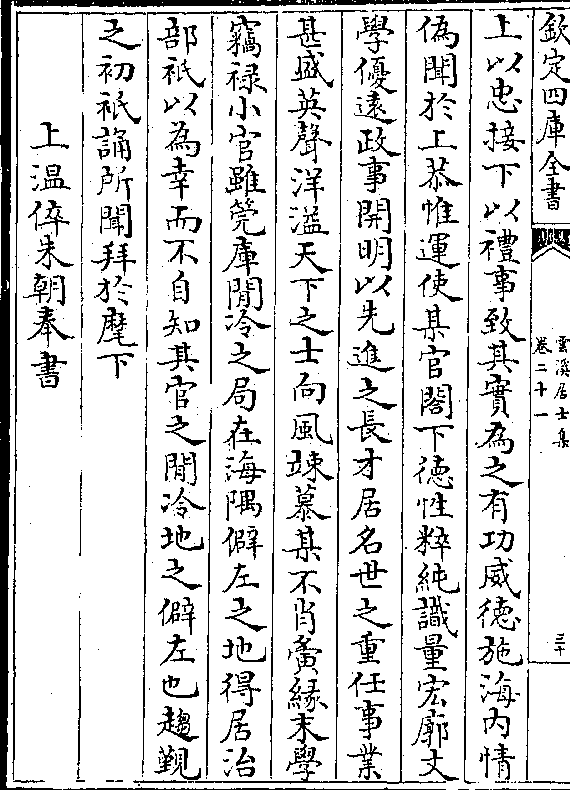 欽定四庫全書
雲溪居士集
卷二十一
三十
上以忠接下以禮事致其實為之有功威德施海内情
偽聞於上恭惟運使某官閣下徳性粹純識量宏廓文
學優遠政事開明以先進之長才居名世之重任事業
甚盛英聲洋溢天下之士向風竦慕某不肖夤緣末學
竊禄小官雖筦庫閒冷之局在海隅僻左之地得居治
部祇以為幸而不自知其官之閒冷地之僻左也趨覲
之初祇誦所聞拜於麾下
上温倅朱朝奉書